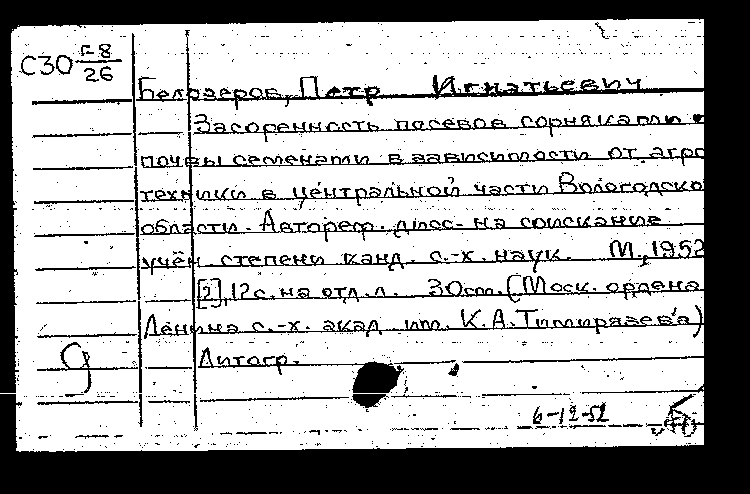 С30 Г-8
26
Белозеров, Петр Игнатьевич
Засоренность посевов сорняками и
почвы семенами в зависимости от агро
техники в центральной части Вологодско
области. Автореф. дисс. на соискание
учён. степени канд. с.-х. наук. М., 1952
[2], 12 с. на отд. л. 30 cm. (Моск. ордена
Ленина с.-х. акад им. К. А. Тимирязева)
Литогр.
6-12-52